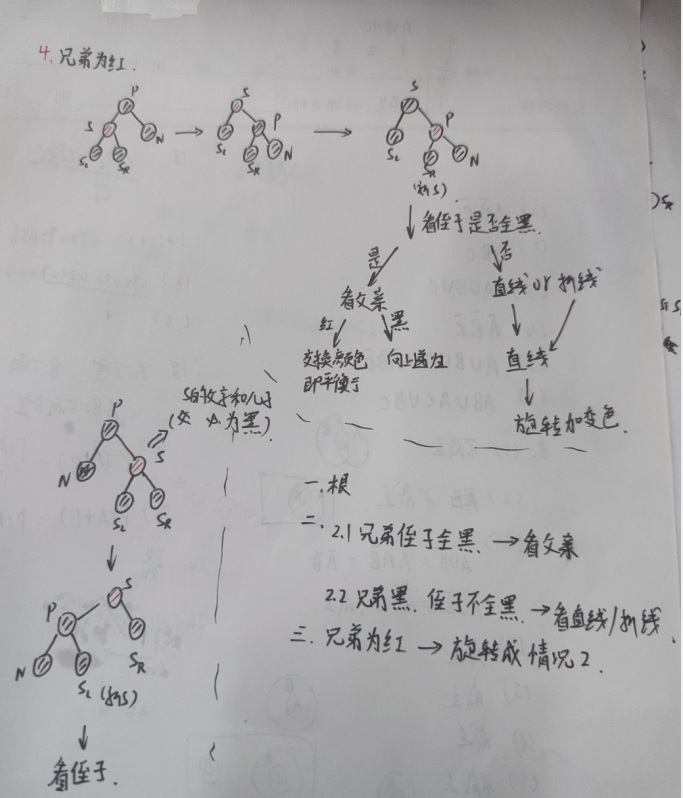 4. 兄弟为红.
P
S
N
SL
SR
S
P
SL
SR
N
S
P
SL
SR
N
(新S)
看侄子是否全黑.
是
否
看父亲
直线 or 折线
红
黑
交换颜色
即平衡了
向上递归
直线
旋转加变色.
P
S
N
SL
SR
S的父亲和儿子
(必 为黑)
P
S
N
SL (新S)
SR
看侄子.
一. 根
二. 2.1 兄弟侄子全黑. → 看父亲
2.2 兄弟黑. 侄子不全黑. → 看直线/折线.
三. 兄弟为红 → 旋转成情况2.